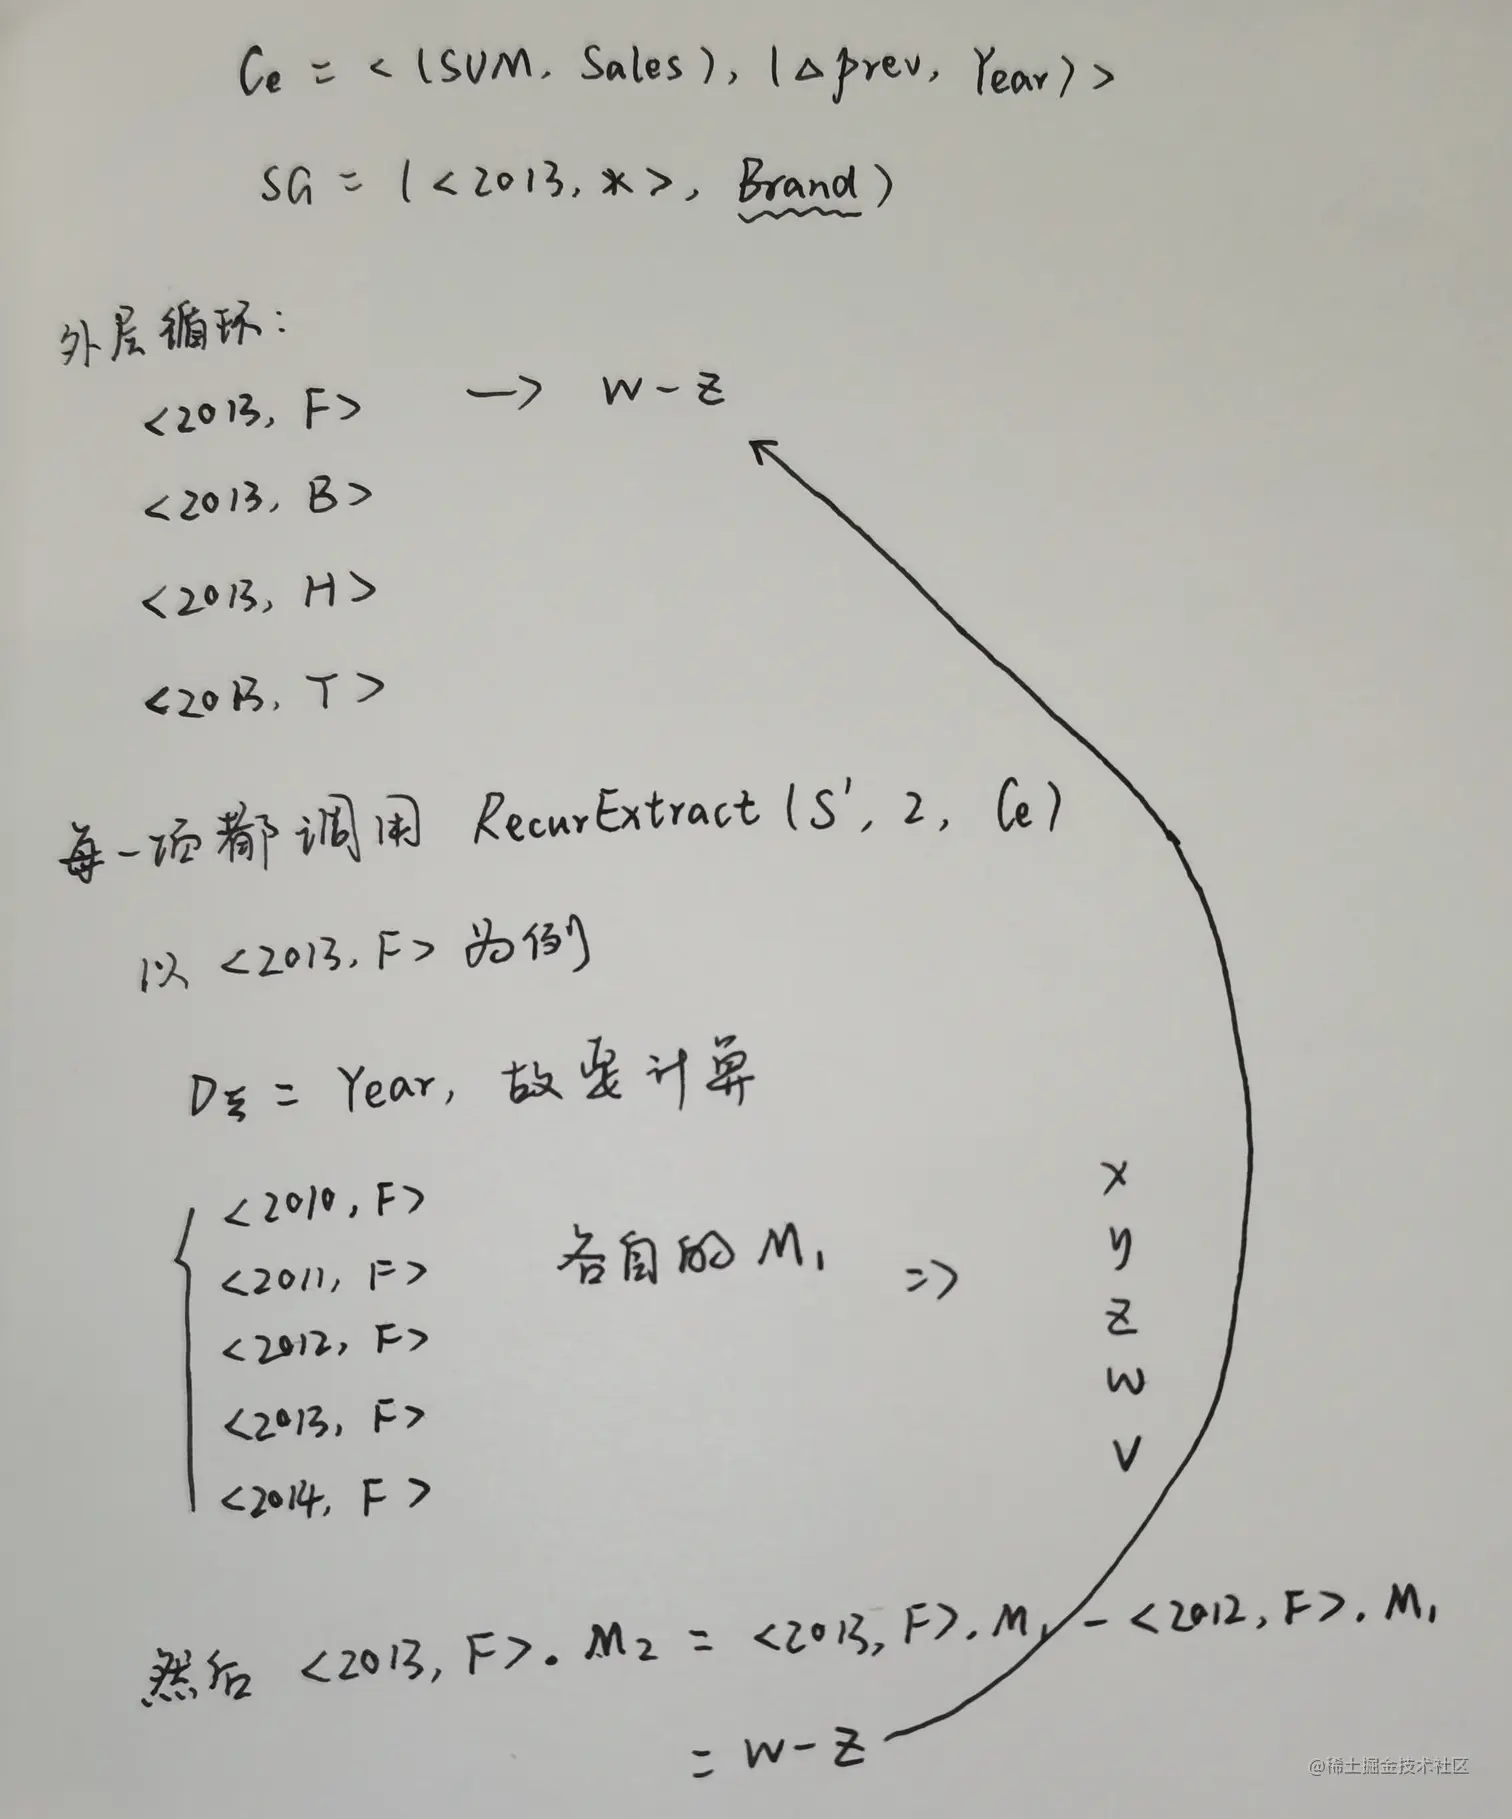 Ce = <(SUM, Sales), (△prev, Year)>
SG = (<2013, *>, Brand)
外层循环:
<2013, F> —> w-z
<2013, B>
<2013, H>
<2013, T>
每一项都调用 RecurExtract(S', 2, Ce)
以 <2013, F> 为例
Dξ = Year, 故要计算
<2010, F>
<2011, F>
<2012, F>
<2013, F>
<2014, F>
各自的 M₁ =>
x
y
z
w
v
然后 <2013, F>. M₂ = <2013, F>. M₁ - <2012, F>. M₁
= w-z
@稀土掘金技术社区